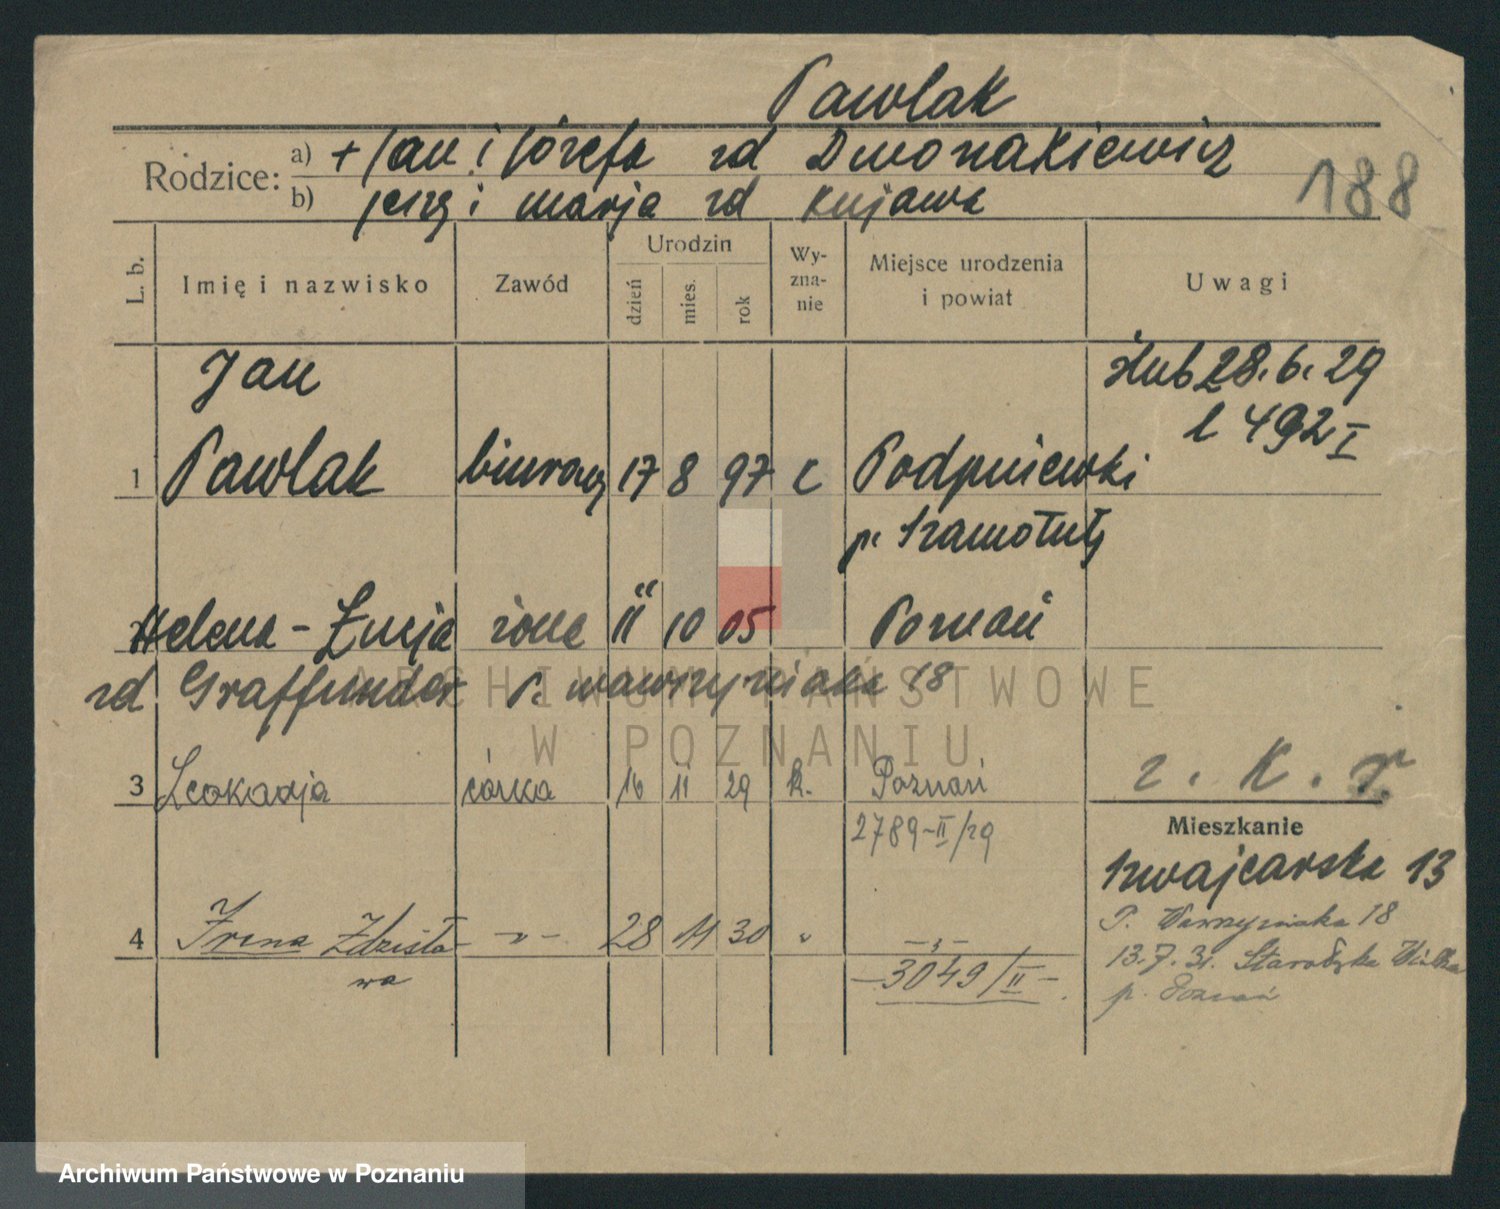 Pawlak
Rodzice: a) + Jan i Józefa zd Dwonakiewicz
b) Jerzy i Marja zd Kujawa
188
L. b. Imię i nazwisko Zawód Urodzin dzień mies. rok Wy-zna-nie Miejsce urodzenia i powiat Uwagi
Jan ślub 28.6.29
l 492 I
1 Pawlak biurowy 17 8 97 k Podpniewki
p. Szamotuły
Helena-Łucja żona 11 10 05 Poznań
zd Graffunder P. Wawrzyniaka 18
ARCHIWUM PAŃSTWOWE
W POZNANIU
3 Leokadja córka 16 11 29 k. Poznań
2789-II/29
r. k.
Mieszkanie
Szwajcarska 13
4 Irena Zdzisła- -"- 28 11 30 " -"-
wa -3049/II-
P. Wawrzyniaka 18
13.7.31. Starołęka Wielka
p. Poznań
Archiwum Państwowe w Poznaniu